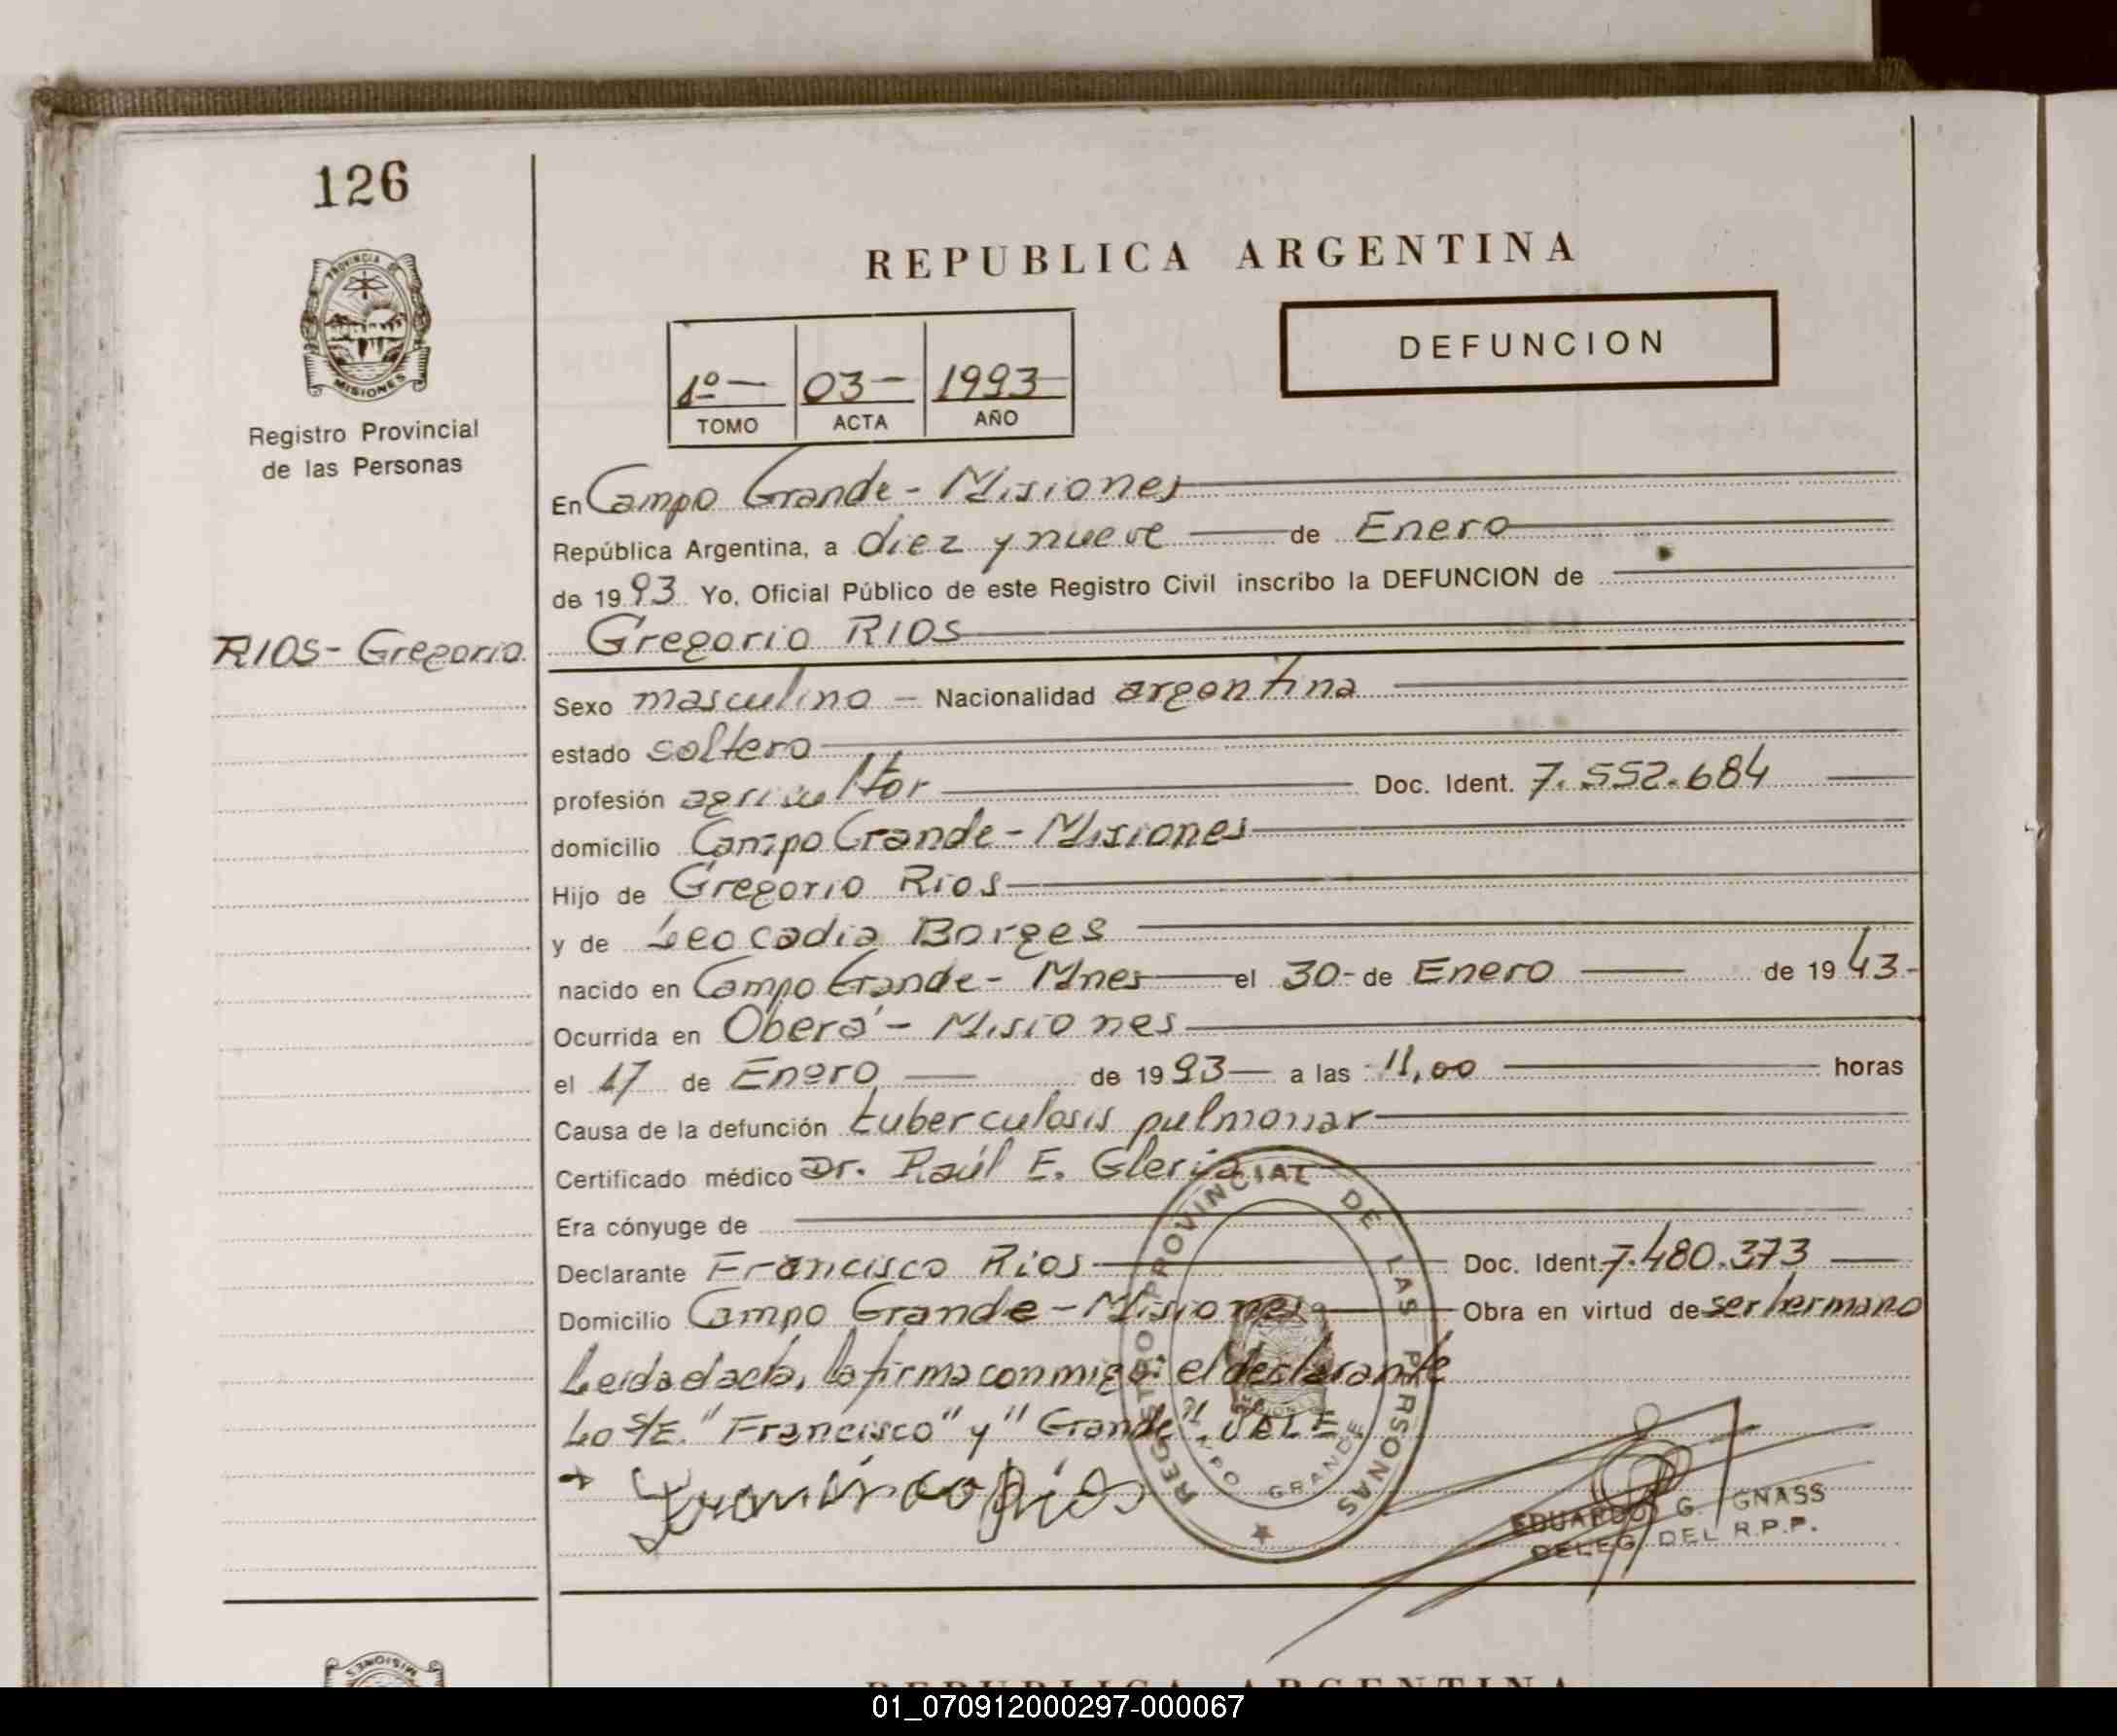 126
PROVINCIA DE
MISIONES
Registro Provincial
de las Personas
REPUBLICA ARGENTINA
DEFUNCION
1º — 03 — 1993
TOMO ACTA AÑO
En Campo Grande - Misiones
República Argentina, a diez y nueve de Enero
de 1993 Yo, Oficial Público de este Registro Civil inscribo la DEFUNCION de
RIOS - Gregorio
Gregorio RIOS
Sexo masculino - Nacionalidad argentina
estado soltero
profesión agricultor Doc. Ident. 7.552.684
domicilio Campo Grande - Misiones
Hijo de Gregorio Rios
y de Leocadia Borges
nacido en Campo Grande - Mnes el 30- de Enero de 1943-
Ocurrida en Oberá - Misiones
el 17 de Enero de 1993 a las 11,00 horas
Causa de la defunción tuberculosis pulmonar
Certificado médico Dr. Raúl E.
Era cónyuge de
Declarante Francisco Rios Doc. Ident. 7.480.373
Domicilio Campo Grande - Misiones Obra en virtud de ser hermano
Leida el acta, la firma conmigo: el declarante
Lo S/E. "Francisco" y "Grande". VALE
Francisco Rios
REGISTRO PROVINCIAL DE LAS PERSONAS
CAMPO GRANDE
EDUARDO G. GNASS
DELEG. DEL R.P.P.
MISIONES
REPUBLICA ARGENTINA
01_070912000297-000067